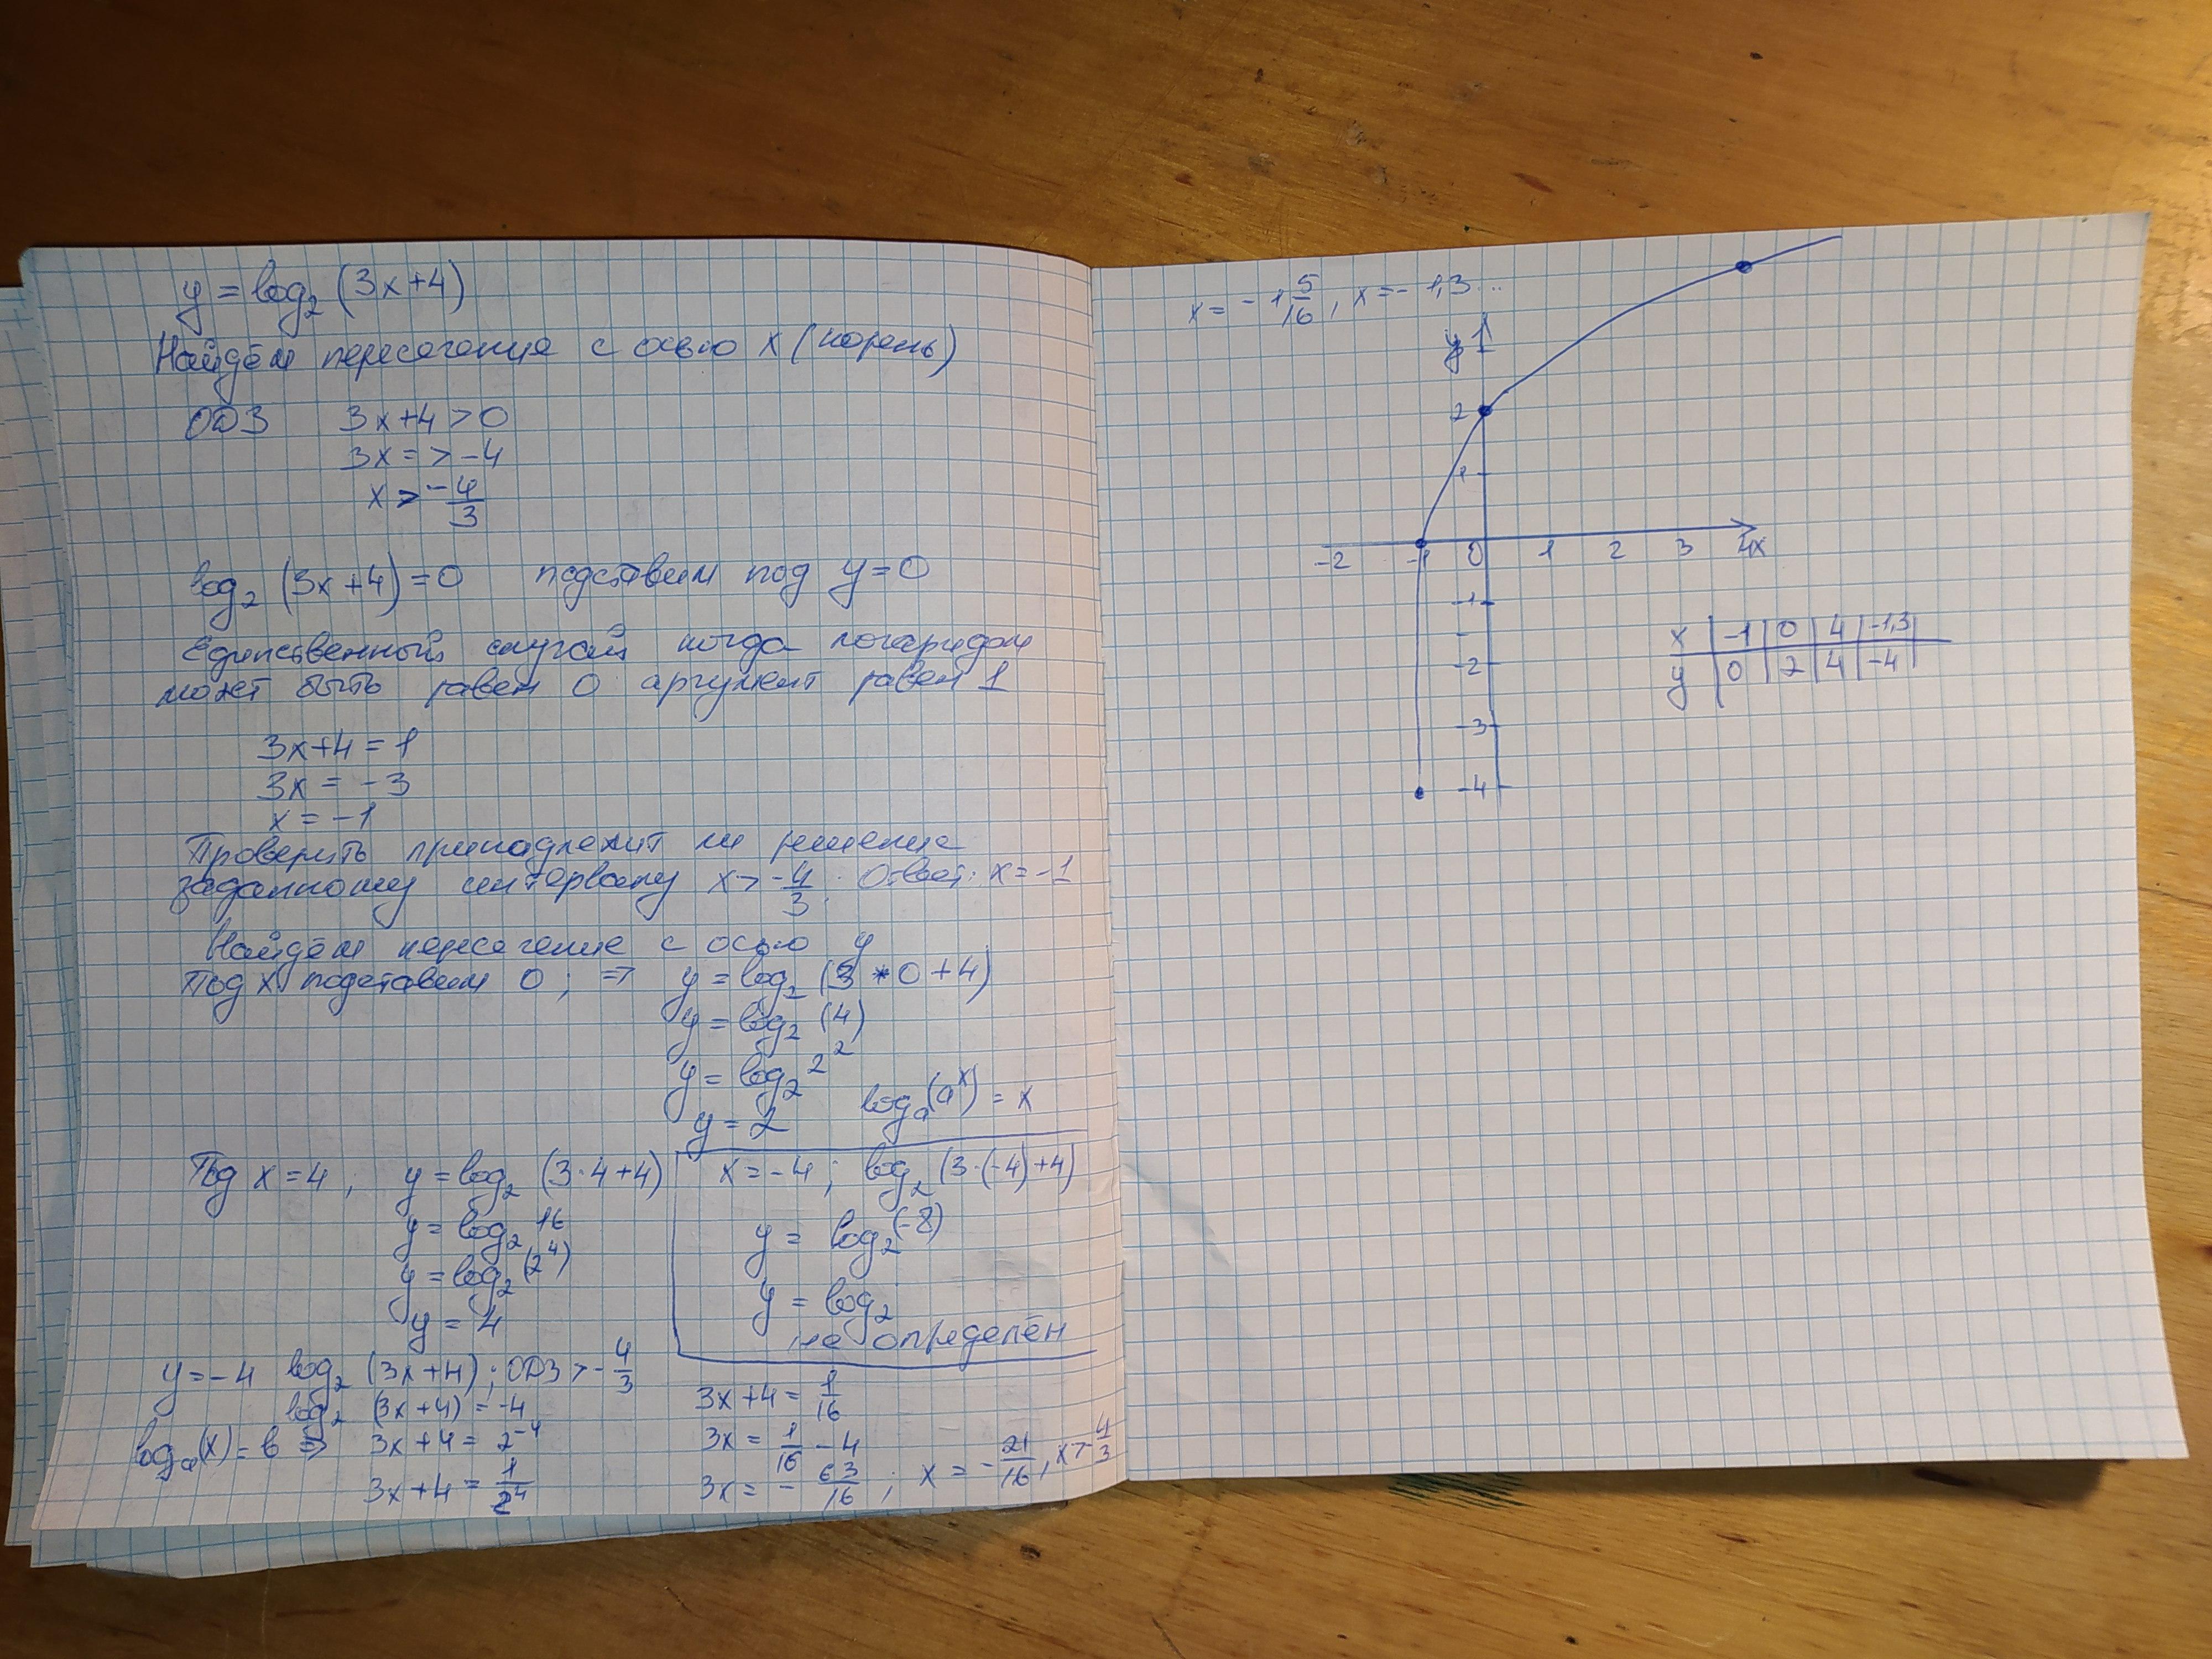 y = log₂ (3x+4)
Найдём пересечение с осью x (корень)
ОДЗ 3x+4 > 0
3x = > -4
x > -4/3
log₂ (3x+4) = 0 подставим под y = 0
Единственный случай когда логарифм
может быть равен 0 аргумент равен 1
3x+4 = 1
3x = -3
x = -1
Проверить принадлежит ли решение
заданному интервалу x > -4/3. Ответ: x = -1
Найдём пересечение с осью y
Под x подставим 0; => y = log₂ (3 * 0 + 4)
y = log₂ (4)
y = log₂ 2²
y = 2 logₐ(aˣ) = x
Под x = 4; y = log₂ (3·4+4)
y = log₂ 16
y = log₂ (2⁴)
y = 4
x = -4; log₂ (3·(-4)+4)
y = log₂ (-8)
y = log₂
не определён
y = -4 log₂ (3x+4); ОДЗ > -4/3
log₂ (3x+4) = -4
logₐ(x) = b => 3x+4 = 2⁻⁴
3x+4 = 1/2⁴
3x+4 = 1/16
3x = 1/16 - 4
3x = -63/16; x = -21/16, x > -4/3
x = -1 5/16, x = -1,3...
y
2
1
-2 -1 0 1 2 3 4x
-1
-2
-3
-4
x -1 0 4 -1,3
y 0 2 4 -4